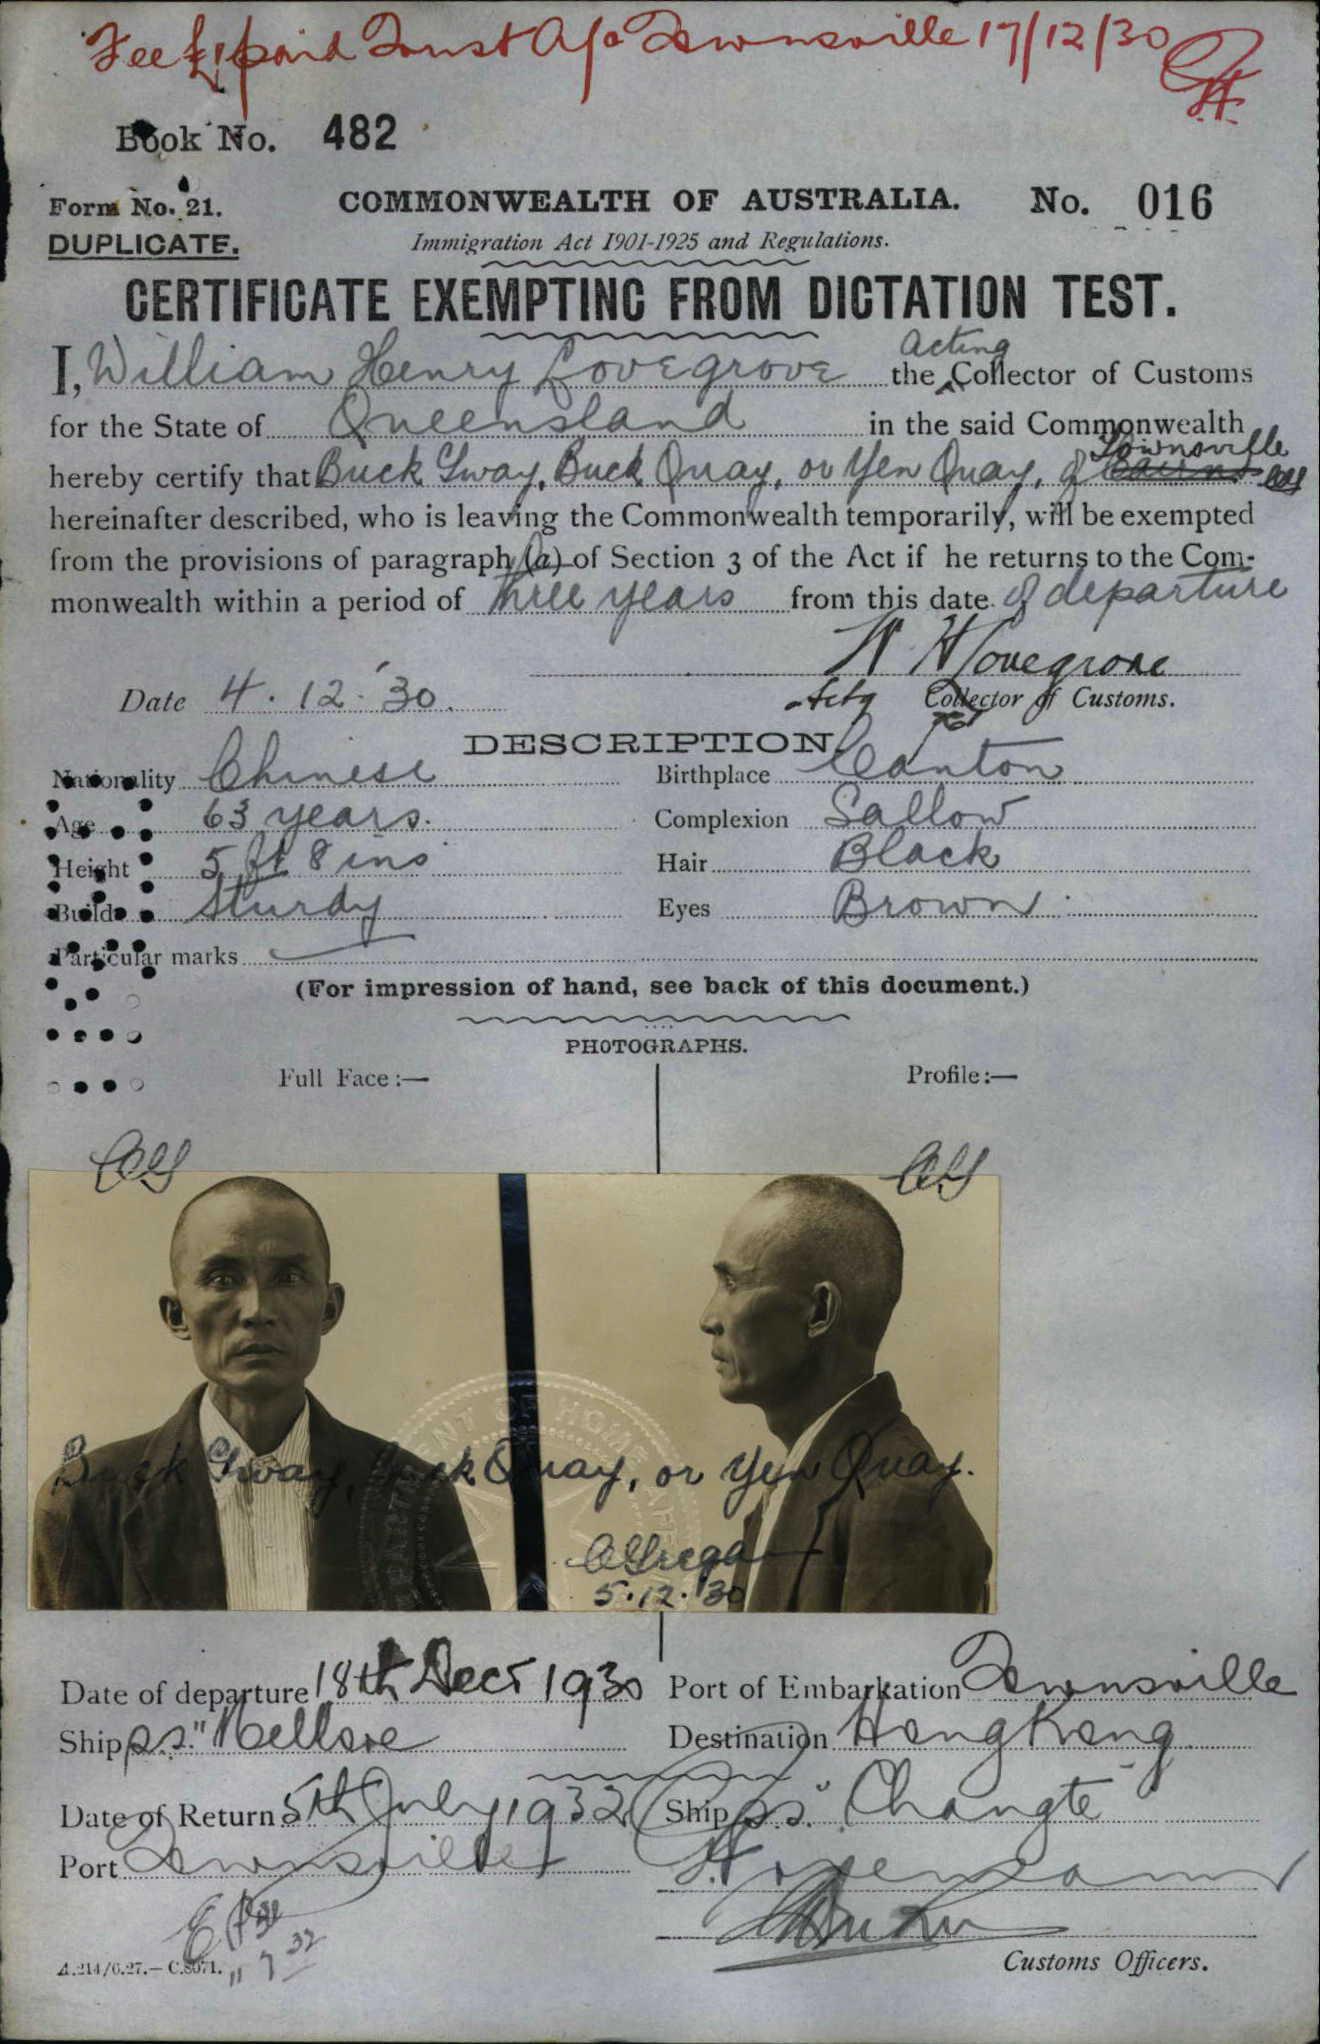 Fee £1 paid Trust A/c Townsville 17/12/30
Book No. 482
Form No. 21.
COMMONWEALTH OF AUSTRALIA.
No. 016
DUPLICATE.
Immigration Act 1901-1925 and Regulations.
CERTIFICATE EXEMPTING FROM DICTATION TEST.
Acting
I, William Henry Lovegrove the Collector of Customs
for the State of Queensland in the said Commonwealth
Townsville
hereby certify that Buck Gway, Buck Quay, or Yen Quay, of Cairns
hereinafter described, who is leaving the Commonwealth temporarily, will be exempted
from the provisions of paragraph (a) of Section 3 of the Act if he returns to the Com-
monwealth within a period of three years from this date of departure
W H Lovegrove
Date 4.12.30.
Actg Collector of Customs.
DESCRIPTION
Nationality Chinese Birthplace Canton
Age 63 years. Complexion Sallow
Height 5 ft 8 ins Hair Black
Build Sturdy Eyes Brown
Particular marks
(For impression of hand, see back of this document.)
PHOTOGRAPHS.
Full Face:— Profile:—
Buck Gway, Buck Quay, or Yen Quay.
5.12.30
Date of departure 18th Decr 1930 Port of Embarkation Townsville
Ship s.s. "Mellore Destination Hong Kong
Date of Return 5th July 1932 Ship s.s. "Changte"
Port Townsville
Customs Officers.
A.214/6.27.—C.8071.